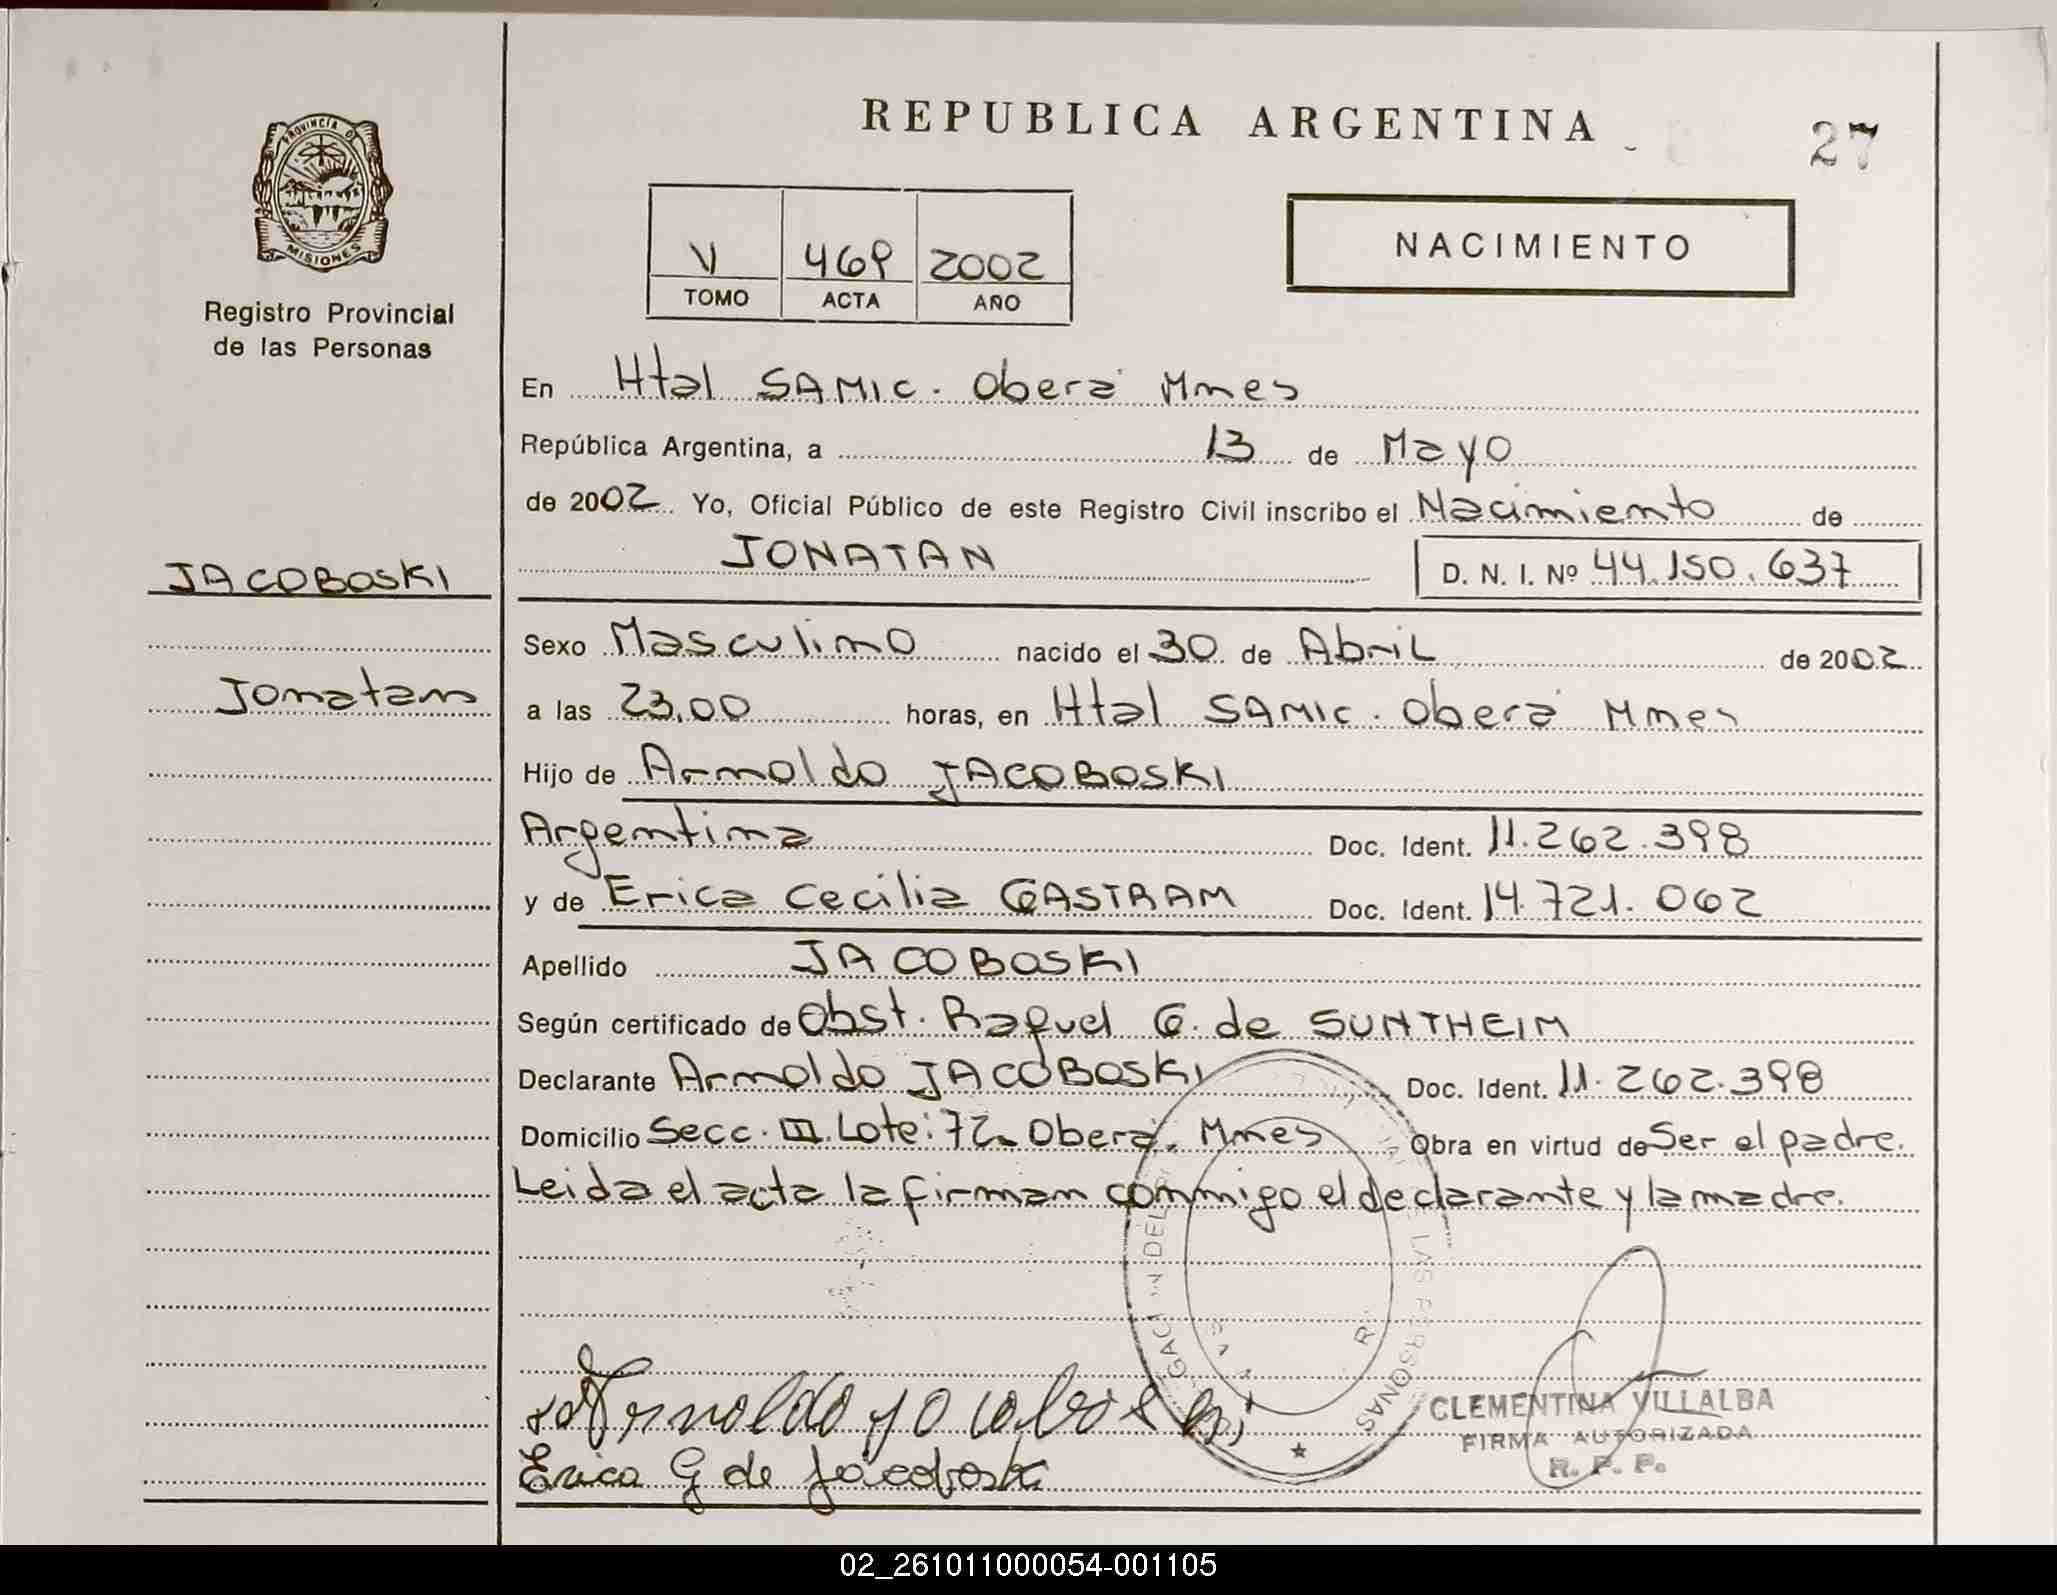 REPUBLICA ARGENTINA
27
PROVINCIA DE
MISIONES
Registro Provincial
de las Personas
V 469 2002
TOMO ACTA AÑO
NACIMIENTO
En Htal SAMIC. Oberá Mnes
República Argentina, a 13 de Mayo
de 2002 Yo, Oficial Público de este Registro Civil inscribo el Nacimiento de
JONATAN D. N. I. Nº 44.150.637
JACOBOSKI
Jonatan
Sexo Masculino nacido el 30 de Abril de 2002
a las 23,00 horas, en Htal SAMIC. Oberá Mnes
Hijo de Arnoldo JACOBOSKI
Argentina Doc. Ident. 11.262.398
y de Erica Cecilia GASTRAM Doc. Ident. 14.721.062
Apellido JACOBOSKI
Según certificado de Obst. Raquel G. de SUNTHEIM
Declarante Arnoldo JACOBOSKI Doc. Ident. 11.262.398
Domicilio Secc. III. Lote: 72. Oberá. Mnes Obra en virtud de Ser el padre.
Leida el acta la firman conmigo el declarante y la madre.
LAS PERSONAS
Arnoldo jacoboski
Erica G de Jacoboski
CLEMENTINA VILLALBA
FIRMA AUTORIZADA
R. P. P.
02_261011000054-001105